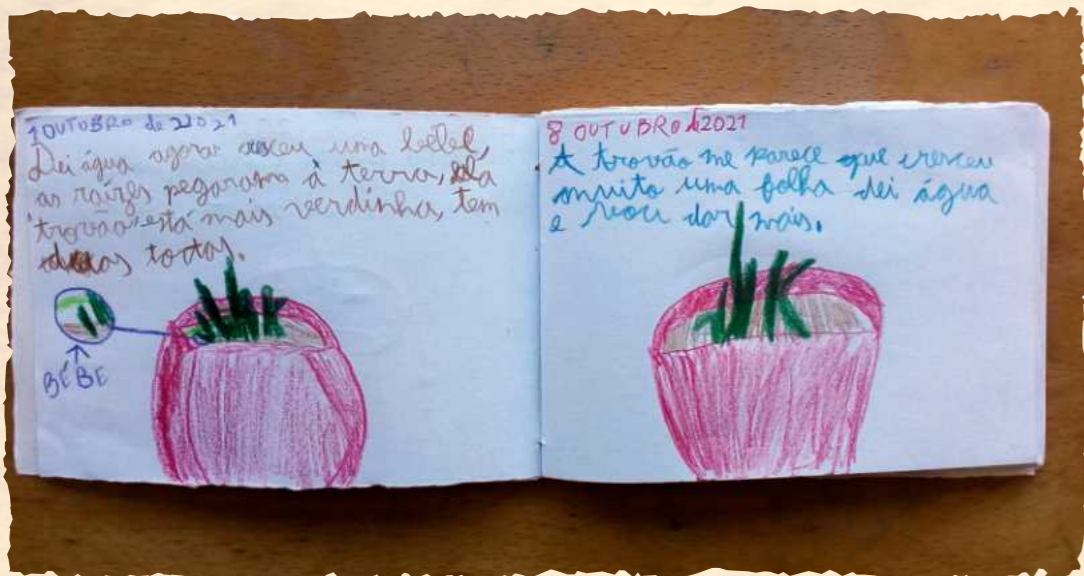 1 OUTUBRO de 2021
Dei água agora cresceu uma bebé,
as raízes pegaram à terra, ela
trovão está mais verdinha, tem
tortas.
BÉBE
8 OUTUBRO de 2021
A trovão me parece que cresceu
muito uma folha dei água
e vou dar mais.